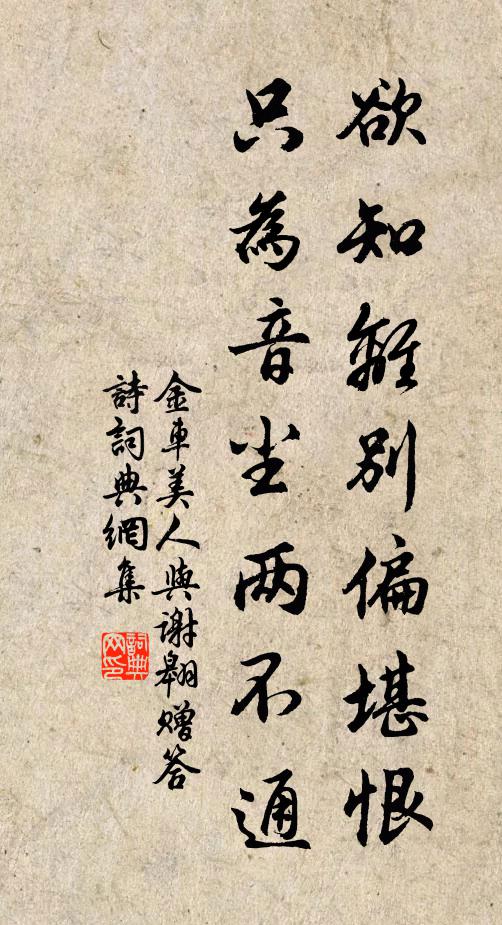 欲知離別偏堪恨
只為音尘两不通
金車美人與謝翱贈答
詩詞典網集
詞典网印